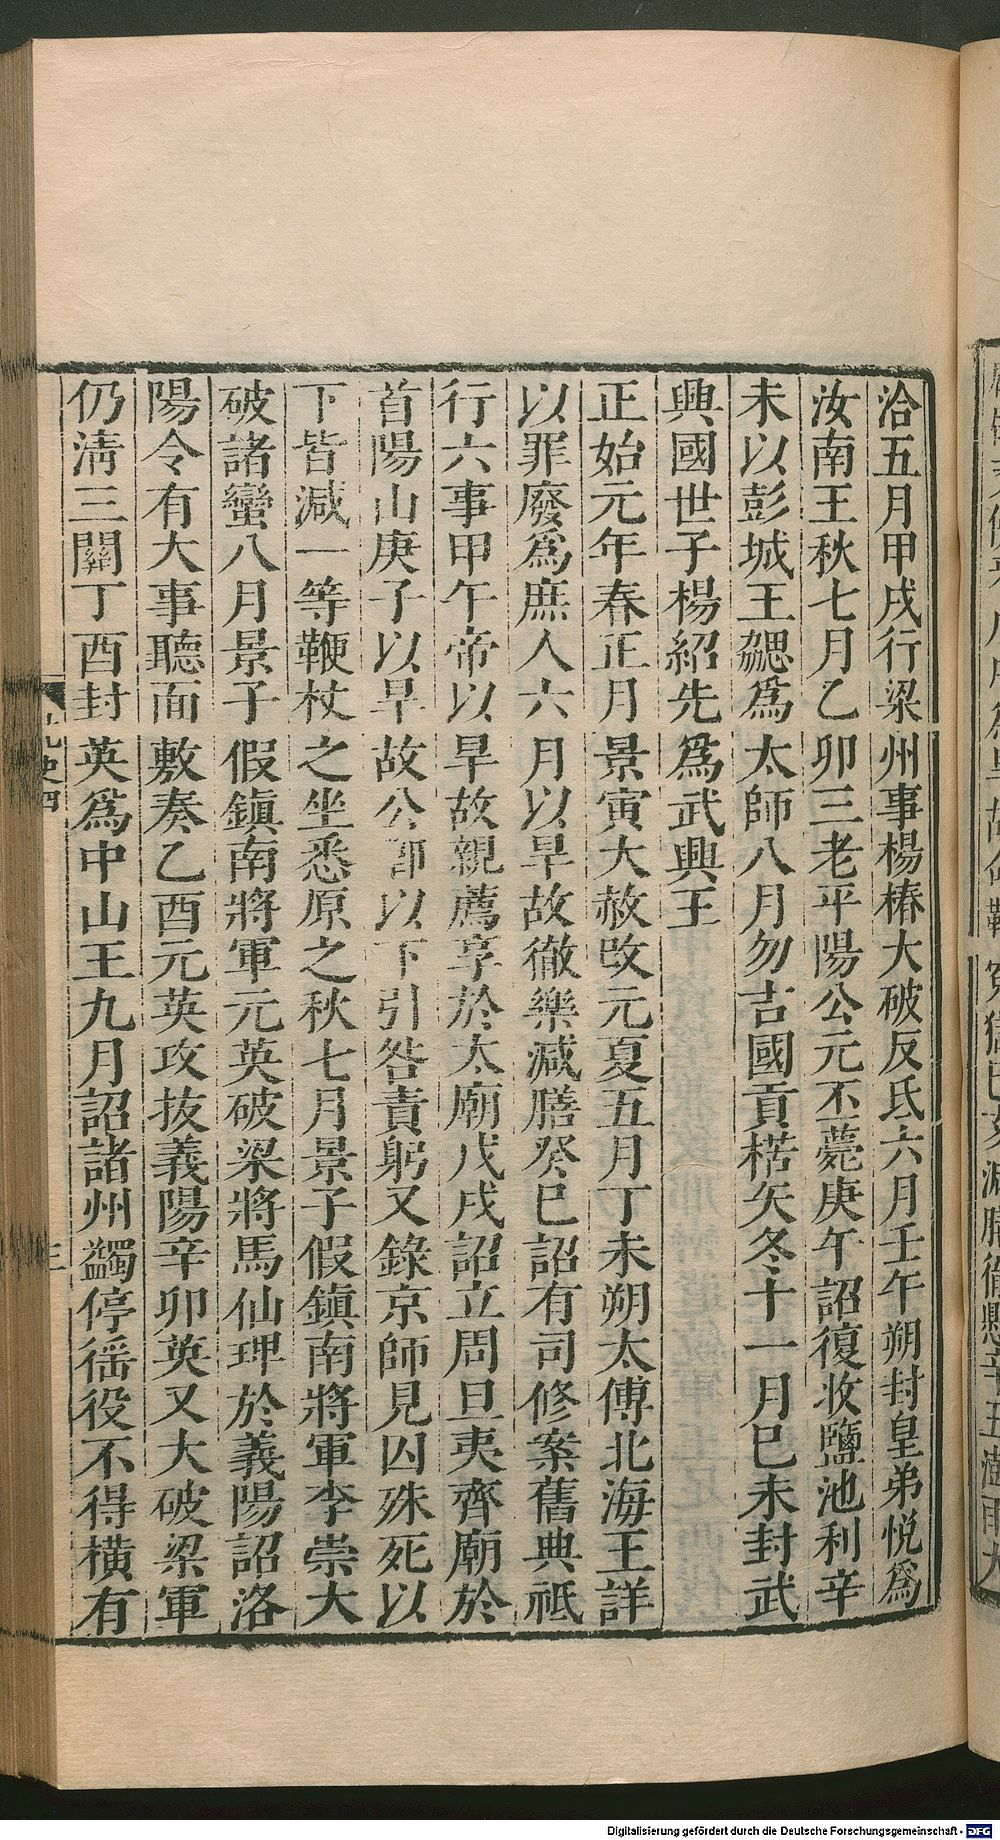 洽五月甲戌行梁州事楊椿大破反氐六月壬午朔封皇弟悅爲
汝南王秋七月乙卯三老平陽公元不薨庚午詔復收鹽池利辛
未以彭城王勰爲太師八月勿吉國貢楛矢冬十一月巳未封武
興國世子楊紹先爲武興王
正始元年春正月景寅大赦改元夏五月丁未朔太傅北海王詳
以罪廢爲庶人六月以旱故徹樂減膳癸巳詔有司修案舊典祗
行六事甲午帝以旱故親薦享於太廟戊戌詔立周旦夷齊廟於
首陽山庚子以旱故公卿以下引咎責躬又錄京師見囚殊死以
下皆減一等鞭杖之坐悉原之秋七月景子假鎮南將軍李崇大
破諸蠻八月景子假鎮南將軍元英破梁將馬仙琕於義陽詔洛
陽令有大事聽面敷奏乙酉元英攻抜義陽辛卯英又大破梁軍
仍清三關丁酉封英爲中山王九月詔諸州蠲停徭役不得橫有
北史四
三
Digitalisierung gefördert durch die Deutsche Forschungsgemeinschaft - DFG